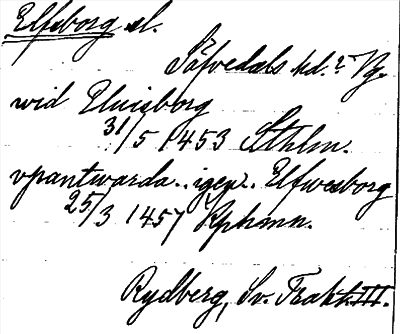 Elfsborg sl.
Säfvedals hd. Vg.
wid Eluisborg
31/5 1453 Sthlm.
vpantwarda .. igen. Elfwesborg
25/3 1457 Kphmn.
Rydberg, Sv. Trakt. III.